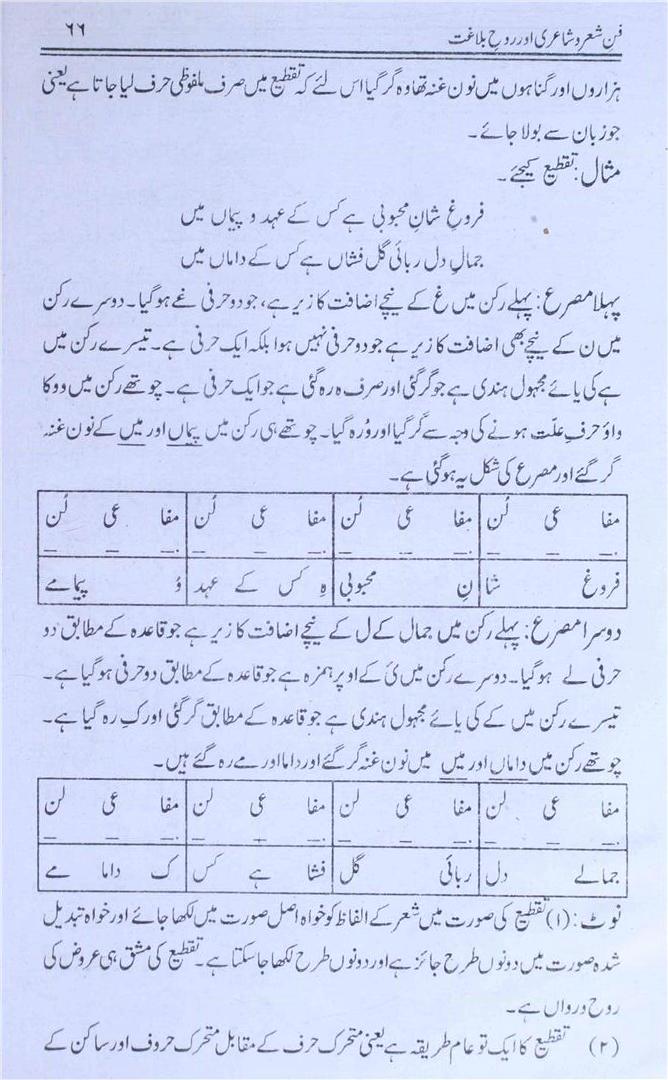 فنِ شعر و شاعری اور روحِ بلاغت ۶۶
ہزاروں اور گناہوں میں نون غنہ تھا وہ گر گیا اس لئے کہ تقطیع میں صرف ملفوظی حرف لیا جاتا ہے یعنی
جو زبان سے بولا جائے۔
مثال: تقطیع کیجئے۔
فروغِ شانِ محبوبی ہے کس کے عہد و پیماں میں
جمالِ دل ربائی گل فشاں ہے کس کے داماں میں
پہلا مصرع: پہلے رکن میں غ کے نیچے اضافت کا زیر ہے، جو دو حرفی غے ہو گیا۔ دوسرے رکن
میں ن کے نیچے بھی اضافت کا زیر ہے جو دو حرفی نہیں ہوا بلکہ ایک حرفی ہے۔ تیسرے رکن میں
ہے کی یائے مجہول ہندی ہے جو گر گئی اور صرف ہ رہ گئی ہے جو ایک حرفی ہے۔ چوتھے رکن میں دو کا
واؤ حرفِ علّت ہونے کی وجہ سے گر گیا اور وُ رہ گیا۔ چوتھے ہی رکن میں پیماں اور میں کے نون غنہ
گر گئے اور مصرع کی شکل یہ ہو گئی ہے۔
مفا عی لُن مفا عی لُن مفا عی لُن مفا عی لُن
فروغ شا نِ محبوبی ہِ کس کے عہد وُ پیما مے
دوسرا مصرع: پہلے رکن میں جمال کے ل کے نیچے اضافت کا زیر ہے جو قاعدہ کے مطابق دو
حرفی لے ہو گیا۔ دوسرے رکن میں ئ کے اوپر ہمزہ ہے جو قاعدہ کے مطابق دو حرفی ہو گیا ہے۔
تیسرے رکن میں کے کی یائے مجہول ہندی ہے جو قاعدہ کے مطابق گر گئی اور کِ رہ گیا ہے۔
چوتھے رکن میں داماں اور میں میں نون غنہ گر گئے اور داما اور مے رہ گئے ہیں۔
مفا عی لن مفا عی لن مفا عی لن مفا عی لن
جمالے دل ربائی گل فشا ہے کس ک داما مے
نوٹ: (۱) تقطیع کی صورت میں شعر کے الفاظ کو خواہ اصل صورت میں لکھا جائے اور خواہ تبدیل
شدہ صورت میں دونوں طرح جائز ہے اور دونوں طرح لکھا جا سکتا ہے۔ تقطیع کی مشق ہی عروض کی
روح و رواں ہے۔
(۲) تقطیع کا ایک تو عام طریقہ ہے یعنی متحرک حرف کے مقابل متحرک حروف اور ساکن کے